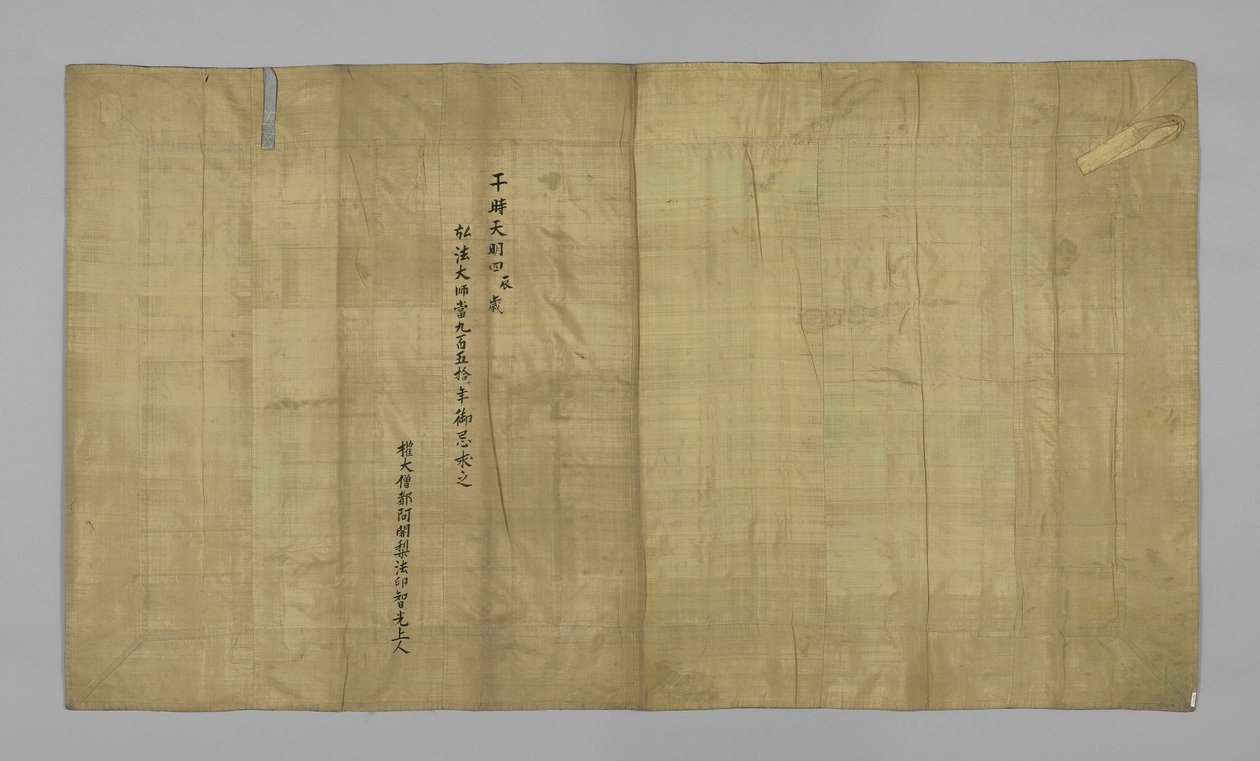 干時天明四辰歳
弘法大師當九百五拾ヶ年御忌求之
權大僧都阿闍梨法印智光上人